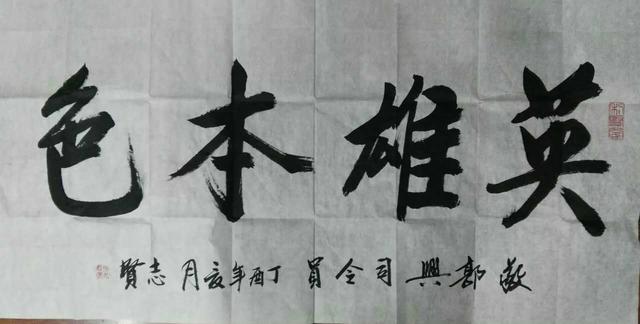 英雄本色
敬 郭興司令員 丁酉年亥月 志賢